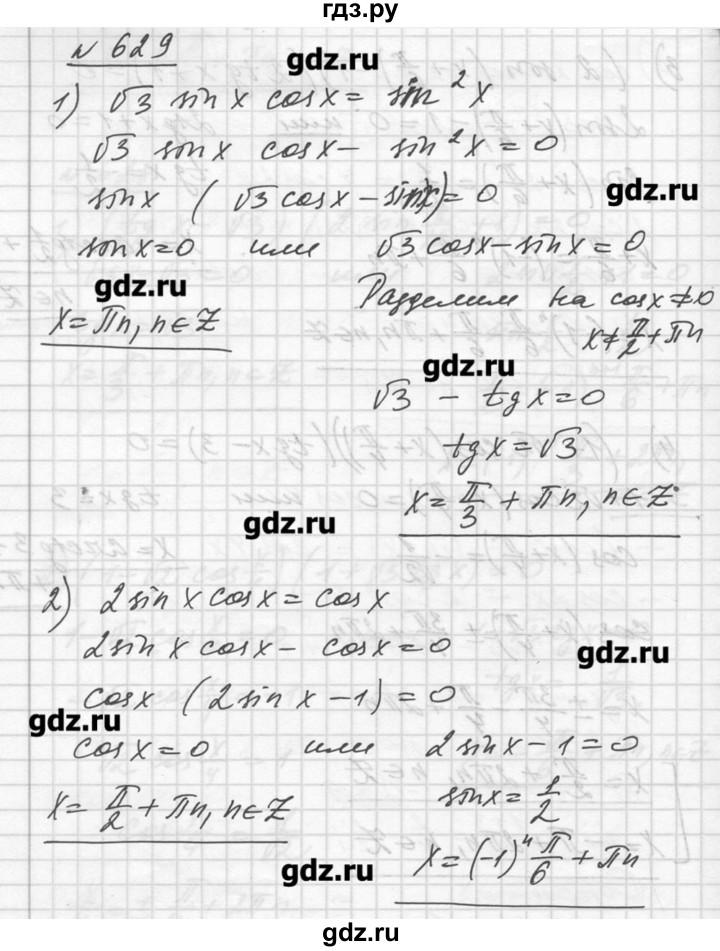 гдз.ру
№ 629
gdz.ru
1) √3 sin x cos x = sin²x
√3 sin x cos x − sin²x = 0
gdz.ru
sin x (√3 cos x − sin x) = 0
sin x = 0 или √3 cos x − sin x = 0
gdz.ru
Разделим на cos x ≠ 0
x = πn, n ∈ Z
x ≠ π/2 + πn
gdz.ru
√3 − tg x = 0
tg x = √3
x = π/3 + πn, n ∈ Z
gdz.ru
2) 2 sin x cos x = cos x
2 sin x cos x − cos x = 0
gdz.ru
cos x (2 sin x − 1) = 0
gdz.ru
cos x = 0 или 2 sin x − 1 = 0
sin x = 1/2
x = π/2 + πn, n ∈ Z
x = (−1)ⁿ π/6 + πn
gdz.ru
gdz.ru